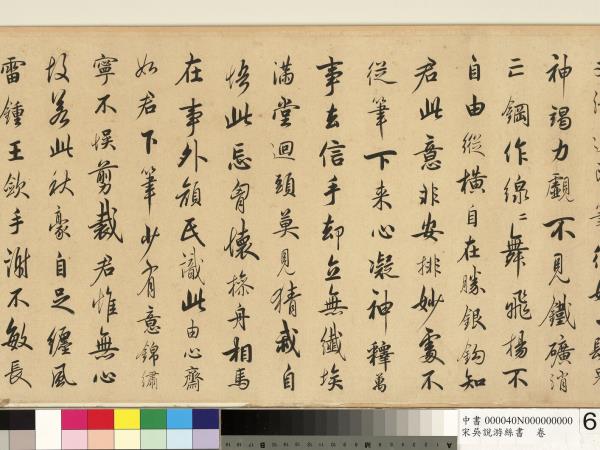 神竭力覷不見鐵礦消
亡鋼作線〻舞飛揚不
自由縱橫自在勝銀鈎知
君此意非安排妙處不
從筆下来心凝神釋萬
事去信手却立無纖埃
滿堂迴頭莫見猜我自
悟此忘胷懷操舟相馬
在事外顔氏識此由心齋
如君下筆少有意錦繡
寧不悞剪裁君惟無心
故若此秋豪自足纏風
雷鍾王歛手謝不敏長
中書 000040N000000000
宋吳說游絲書 卷
6